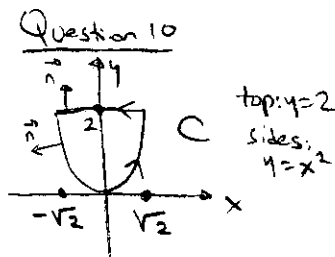 Question 10
n
y
2
n
C
top: y=2
sides:
y=x²
-√2
√2
x